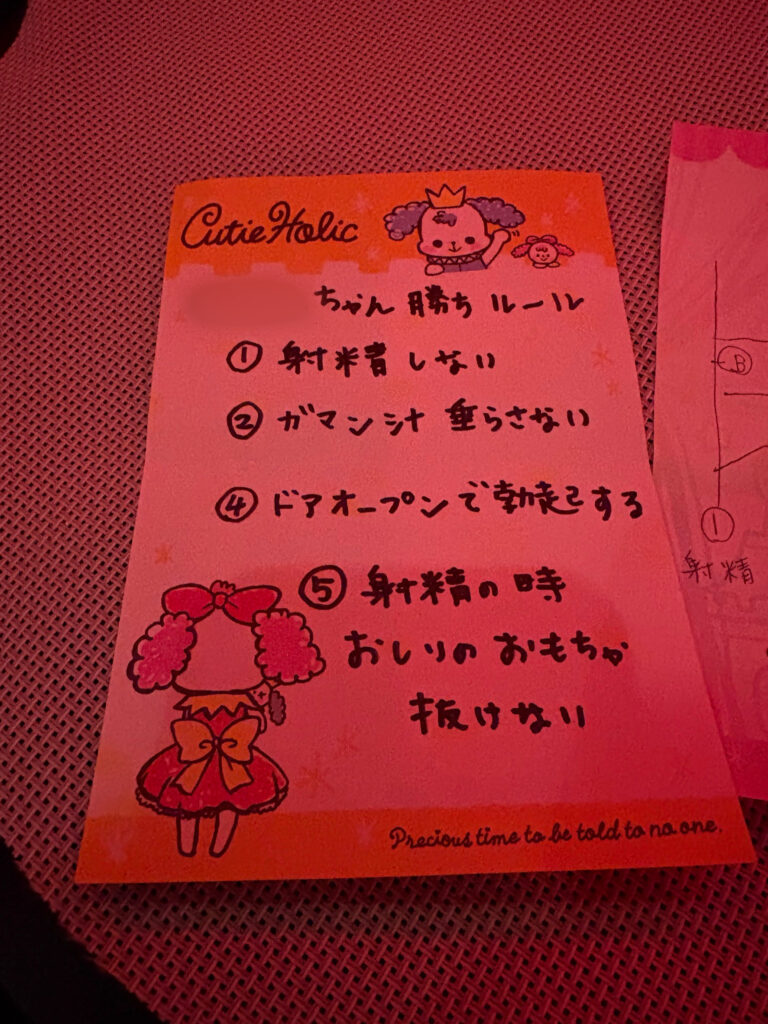 Cutie Holic
ちゃん 勝ち ルール
① 射精 しない
② ガマン汁 垂らさない
④ ドアオープンで勃起する
⑤ 射精の時
おしりの おもちゃ
抜けない
Precious time to be told to no one.
B
①
射精